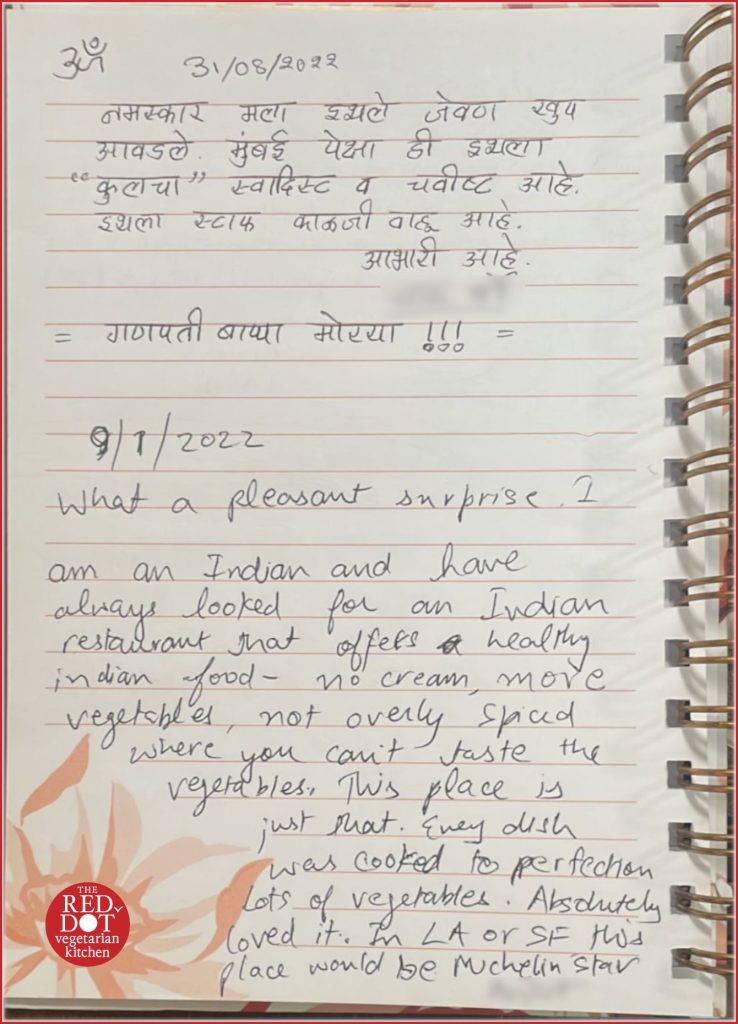 ॐ 31/08/2022
नमस्कार मला इथले जेवण खुप
आवडले. मुंबई पेक्षा ही इथला
“कुलचा” स्वादिस्ट व चवीष्ट आहे.
इथला स्टाफ काळजी वाहू आहे.
आभारी आहे.
= गणपती बाप्पा मोरया !!! =
9/1/2022
What a pleasant surprise. I
am an Indian and have
always looked for an Indian
restaurant that offers a healthy
indian food - no cream, more
vegetables, not overly spiced
where you can't taste the
vegetables. This place is
just that. Every dish
was cooked to perfection
Lots of vegetables. Absolutely
loved it. In LA or SF this
place would be Muchelin Star
THE
RED
DOT
vegetarian
kitchen